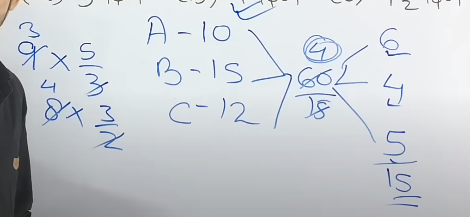 3
9 × 5/3
4
8 × 3/2
A - 10
B - 15
C - 12
4
60
18
6
4
5
15